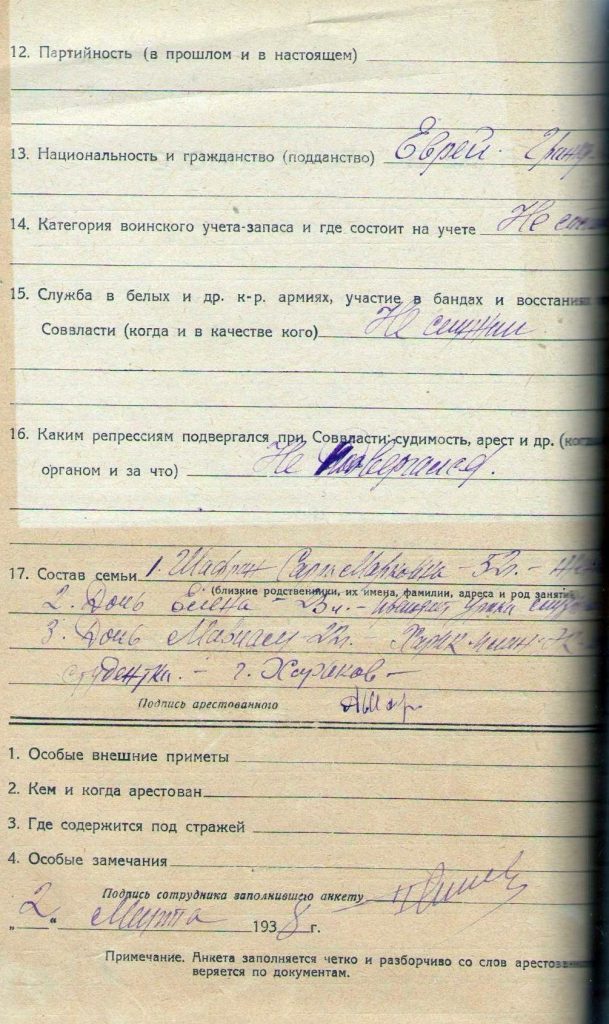 12. Партийность (в прошлом и в настоящем)
13. Национальность и гражданство (подданство) Еврей.
14. Категория воинского учета-запаса и где состоит на учете Не
15. Служба в белых и др. к-р. армиях, участие в бандах и восстаниях
Соввласти (когда и в качестве кого) Не служил
16. Каким репрессиям подвергался при Соввласти: судимость, арест и др. (когда
органом и за что) Не подвергался.
17. Состав семьи 1. Марковна – 52 л. –
(близкие родственники, их имена, фамилии, адреса и род занятий
2. Дочь Елена – 23 л. –
3. Дочь 22 л.
студентка. – г. Харьков –
Подпись арестованного
1. Особые внешние приметы
2. Кем и когда арестован
3. Где содержится под стражей
4. Особые замечания
Подпись сотрудника заполнившего анкету
„2“ Марта 1938 г.
Примечание. Анкета заполняется четко и разборчиво со слов арестованного
веряется по документам.